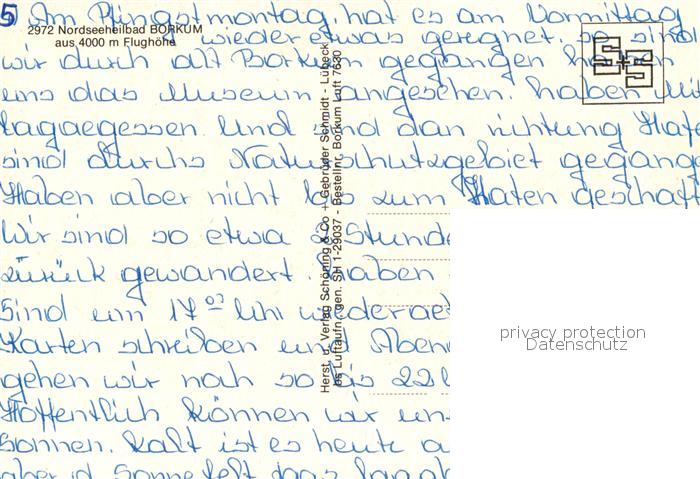 5 Am Pfingstmontag hat es am Vormittag
2972 Nordseeheilbad BORKUM
aus 4000 m Flughöhe
wieder etwas geregnet. so sind
wir durch alt Borkum gegangen haben
uns das Museum angesehen. haben
gegessen Und sind dan richtung
sind durchs Naturschutzgebiet
Haben aber nicht bis zum Hafen
Wir sind so etwa 2
zurück gewandert. Haben
Sind um 17 Uhr wieder
Karten schreiben und
gehen wir noch so bis 22
Hoffentlich können wir
sonnen. Kalt ist es heute
aber d Sonne
Herst. u. Verlag Schöning & Co + Gebrüder Schmidt - Lübeck
Luftaufn. gen. SH 1-29037 - Bestellnr. Borkum Luft 7630
S+S
privacy protection
Datenschutz